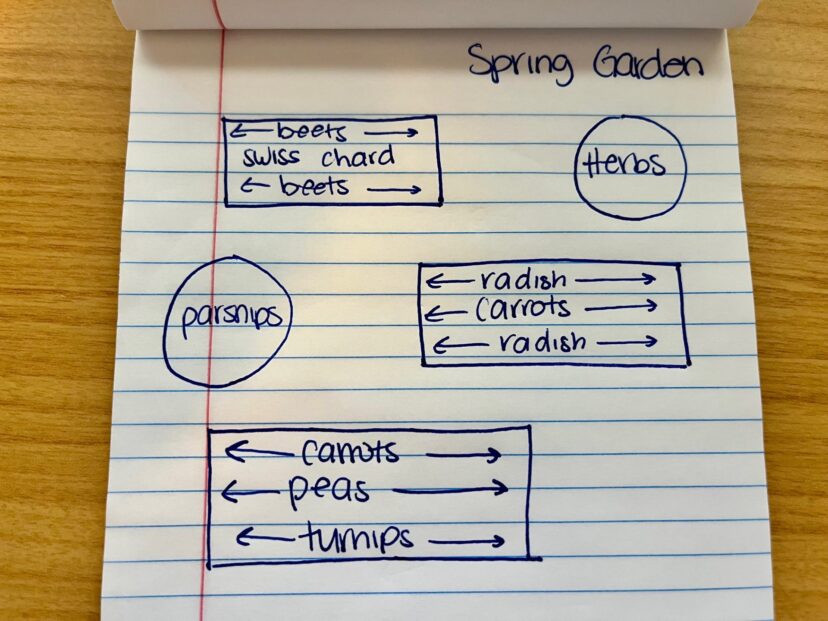 Spring Garden
beets
swiss chard
beets
Herbs
parsnips
radish
carrots
radish
carrots
peas
turnips